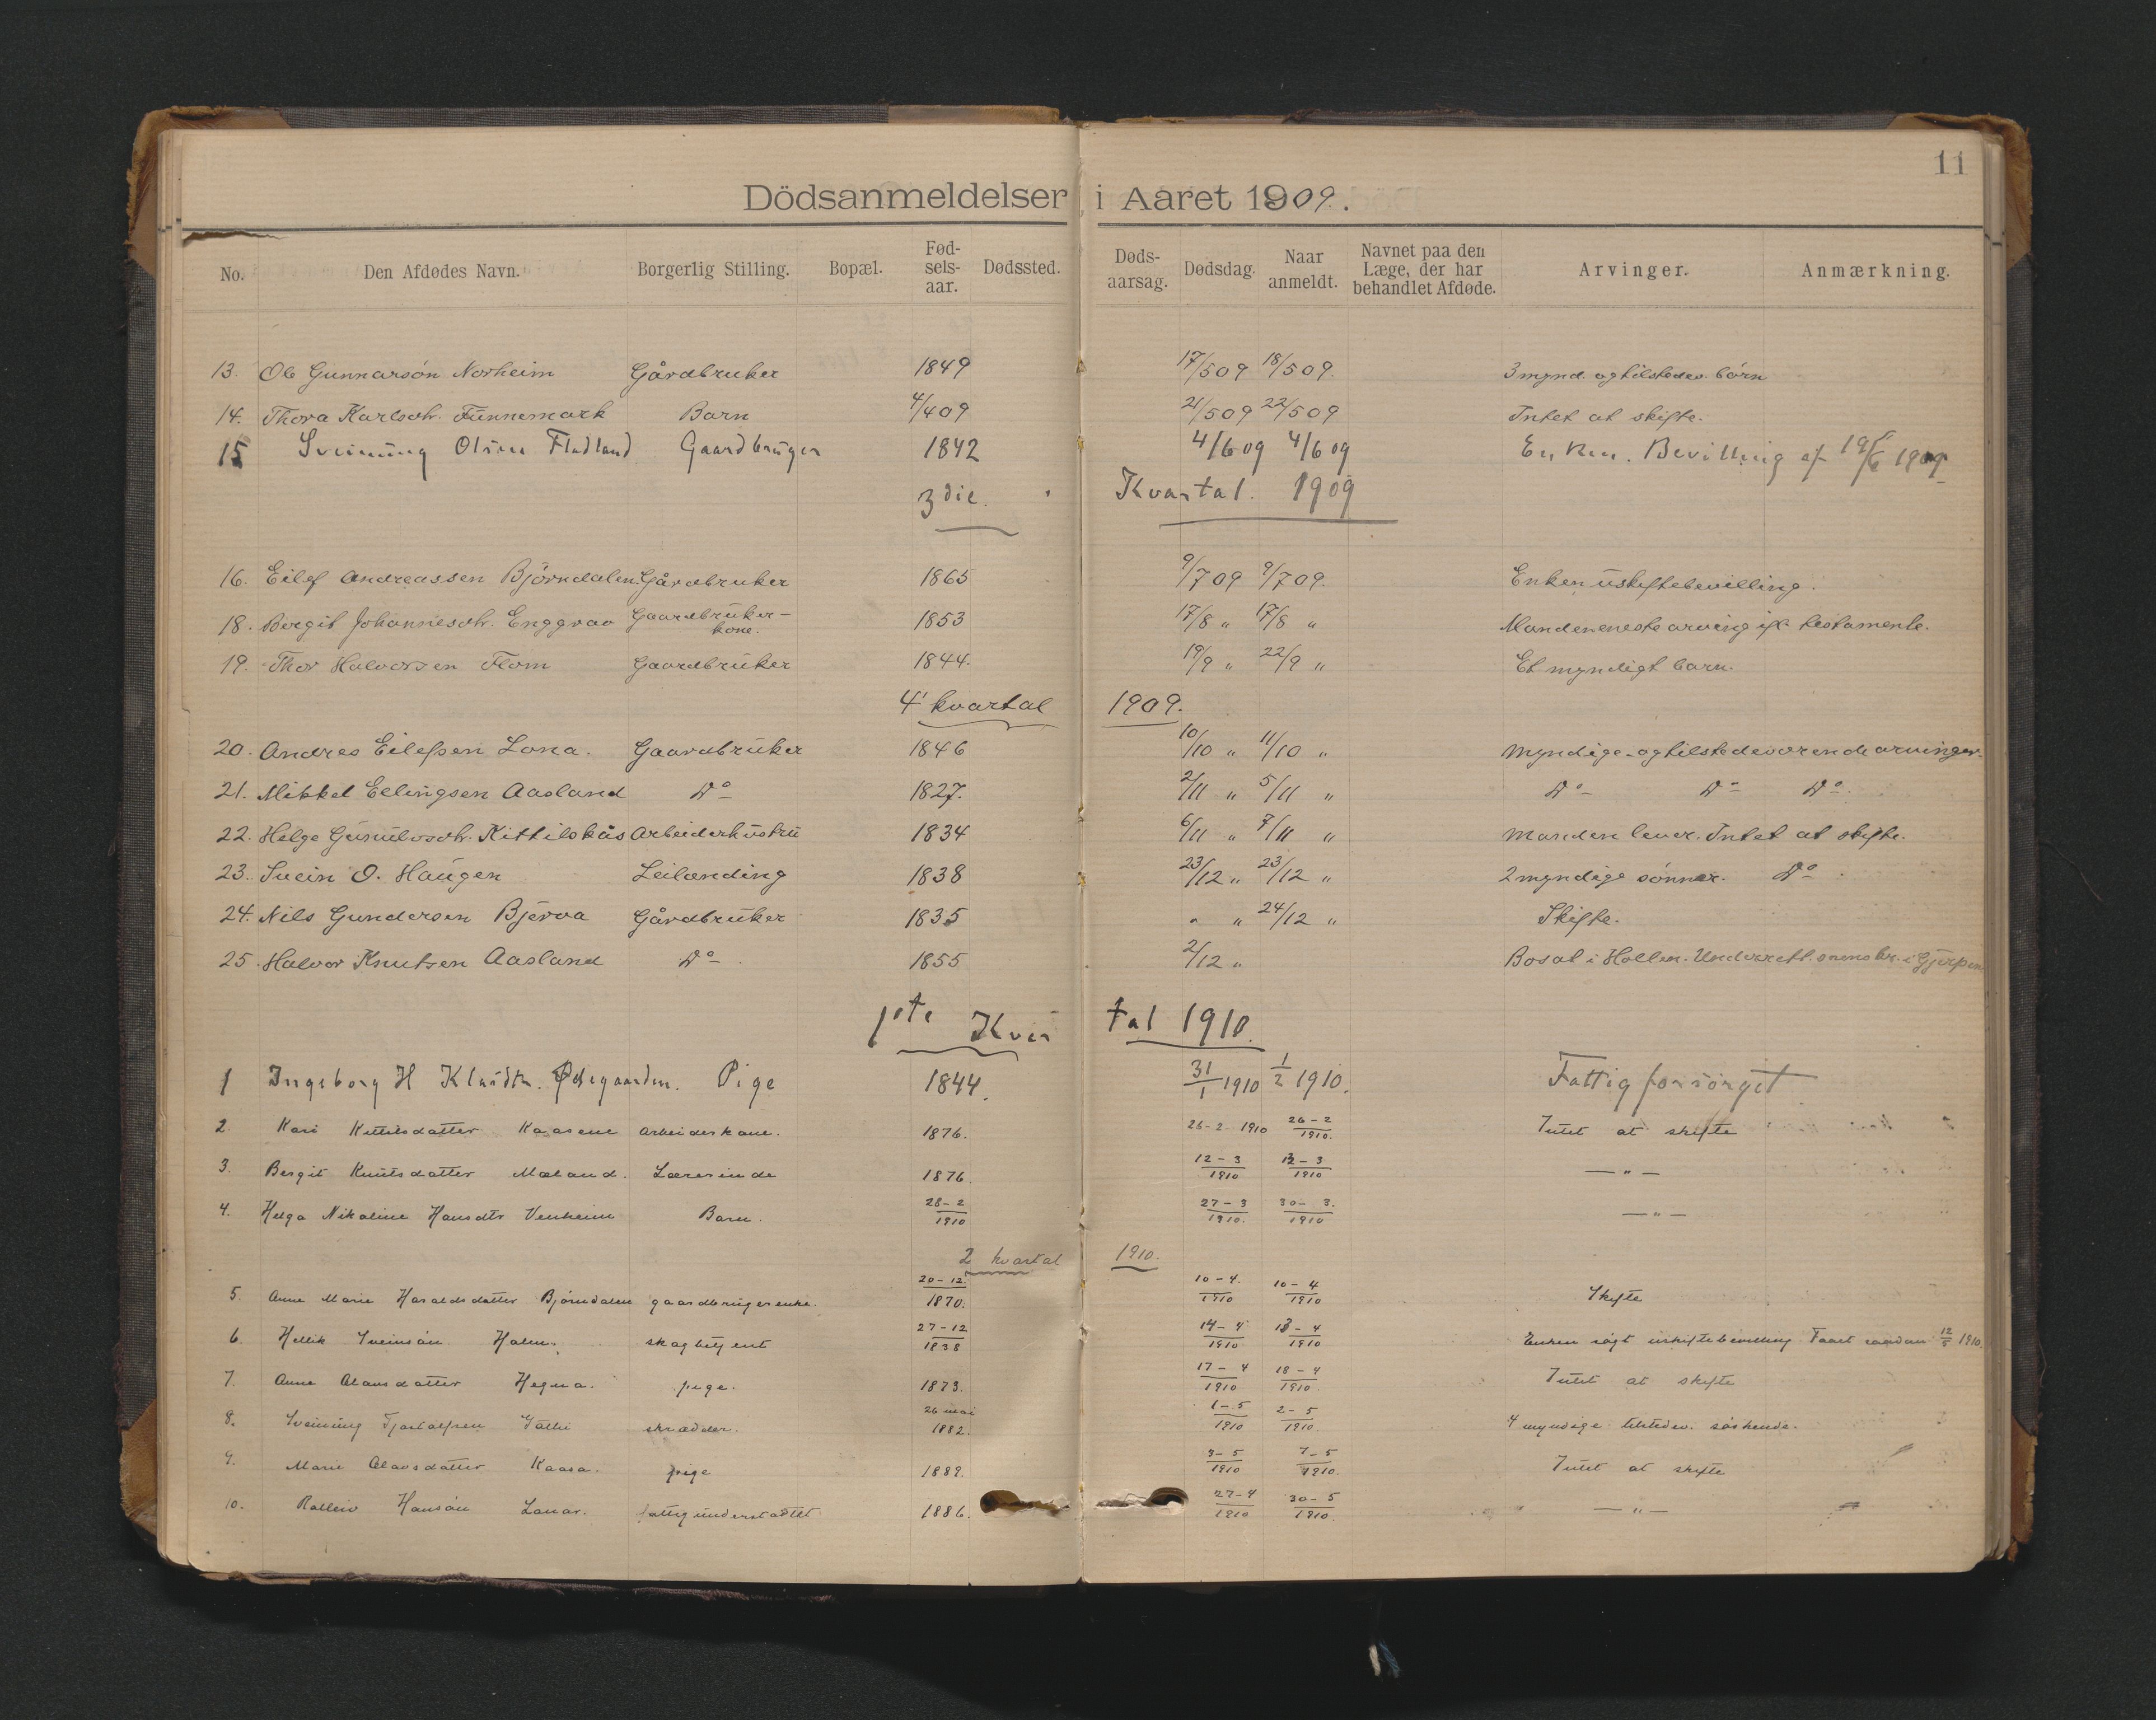 11
Dödsanmeldelser i Aaret 1909.
No. Den Afdødes Navn. Borgerlig Stilling. Bopæl. Fødselsaar. Dødssted. Dødsaarsag. Dødsdag. Naar anmeldt. Navnet paa den Læge, der har behandlet Afdøde. Arvinger. Anmærkning.
13. Ole Gunnarsön Norheim Gårdbruker 1849 17/5 09 18/5 09. 3 mynd. og tilstedev. börn
14. Thora Karlsdtr. Funnemark Barn 4/4 09 21/5 09 22/5 09 Intet at skifte.
15 Sveinung Olsen Fladland Gaardbruger 1842 4/6 09 4/6 09 Enken. Bevilling af 19/6 1909
3die Kvartal. 1909
16. Eilef Andreassen Björndalen Gårdbruker 1865 9/7 09 9/7 09. Enken uskiftebevilling.
18. Bergit Johannesdtr. Enggrav Gaardbruker-kone. 1853 17/8 " 17/8 " Manden eneste arving ifl. testamente.
19. Thor Halvorsen Flom Gaardbruker 1844. 19/9 " 22/9 " Et myndigt barn.
4' kvartal 1909.
20. Andres Eilefsen Lona. Gaardbruker 1846 10/10 " 11/10 " Myndige og tilstedeværende arvinger.
21. Mikkel Ellingsen Aasland Do 1827. 2/11 " 5/11 " Do Do Do.
22. Helge Gunulvsdtr. Kittilskås Arbeiderhustru 1834 6/11 " 7/11 " Manden lever. Intet at skifte.
23. Svein O. Haugen Leilending 1838 23/12 " 23/12 " 2 myndige sönner. Do.
24. Nils Gundersen Bjerva Gårdbruker 1835 " " 24/12 " Skifte.
25. Halvor Knutsen Aasland Do. 1855 2/12 " Bosat i Hollen. Underrett. i Gjerpen
1ste Kvartal 1910.
1 Ingeborg H Klasdtr. Ødegaarden. Pige 1844. 31/1 1910 1/2 1910. Fattigforsörget
2 Kari Kittilsdatter Kaasene arbeiderkone. 1876. 26-2 1910 26-2 1910. Intet at skifte
3. Bergit Knutsdatter Mæland. Lærerinde 1876. 12-3 1910 12-3 1910 — " —
4. Helga Nikoline Hansdtr Venheim Barn. 28-2 1910 27-3 1910. 30-3. 1910 — " —
2 kvartal 1910.
5. Anne Marie Haraldsdatter Björndalen gaardbrugerenke. 20-12. 1870. 10-4. 1910 10-4 1910 Skifte
6. Hellik Sveinsön Holm. skogbetjent 27-12 1838 14-4 1910 18-4 1910 Enken sögt uskiftebevilling Faaet saadan 12/5 1910.
7. Anne Olavsdatter Hegna. pige. 1873. 17-4 1910 18-4 1910. Intet at skifte
8. Sveinung Tjostolfsen skrædder. 26 mai 1882. 1-5 1910 2-5 1910. 4 myndige tilstedev. söskende.
9. Marie Olavsdatter Kaasa. pige 1889. 3-5 1910 7-5 1910. Intet at skifte
10. Rolleiv Hansön Lanar. fattigunderstöttet 1886. 27-4 1910 30-5 1910. — " —